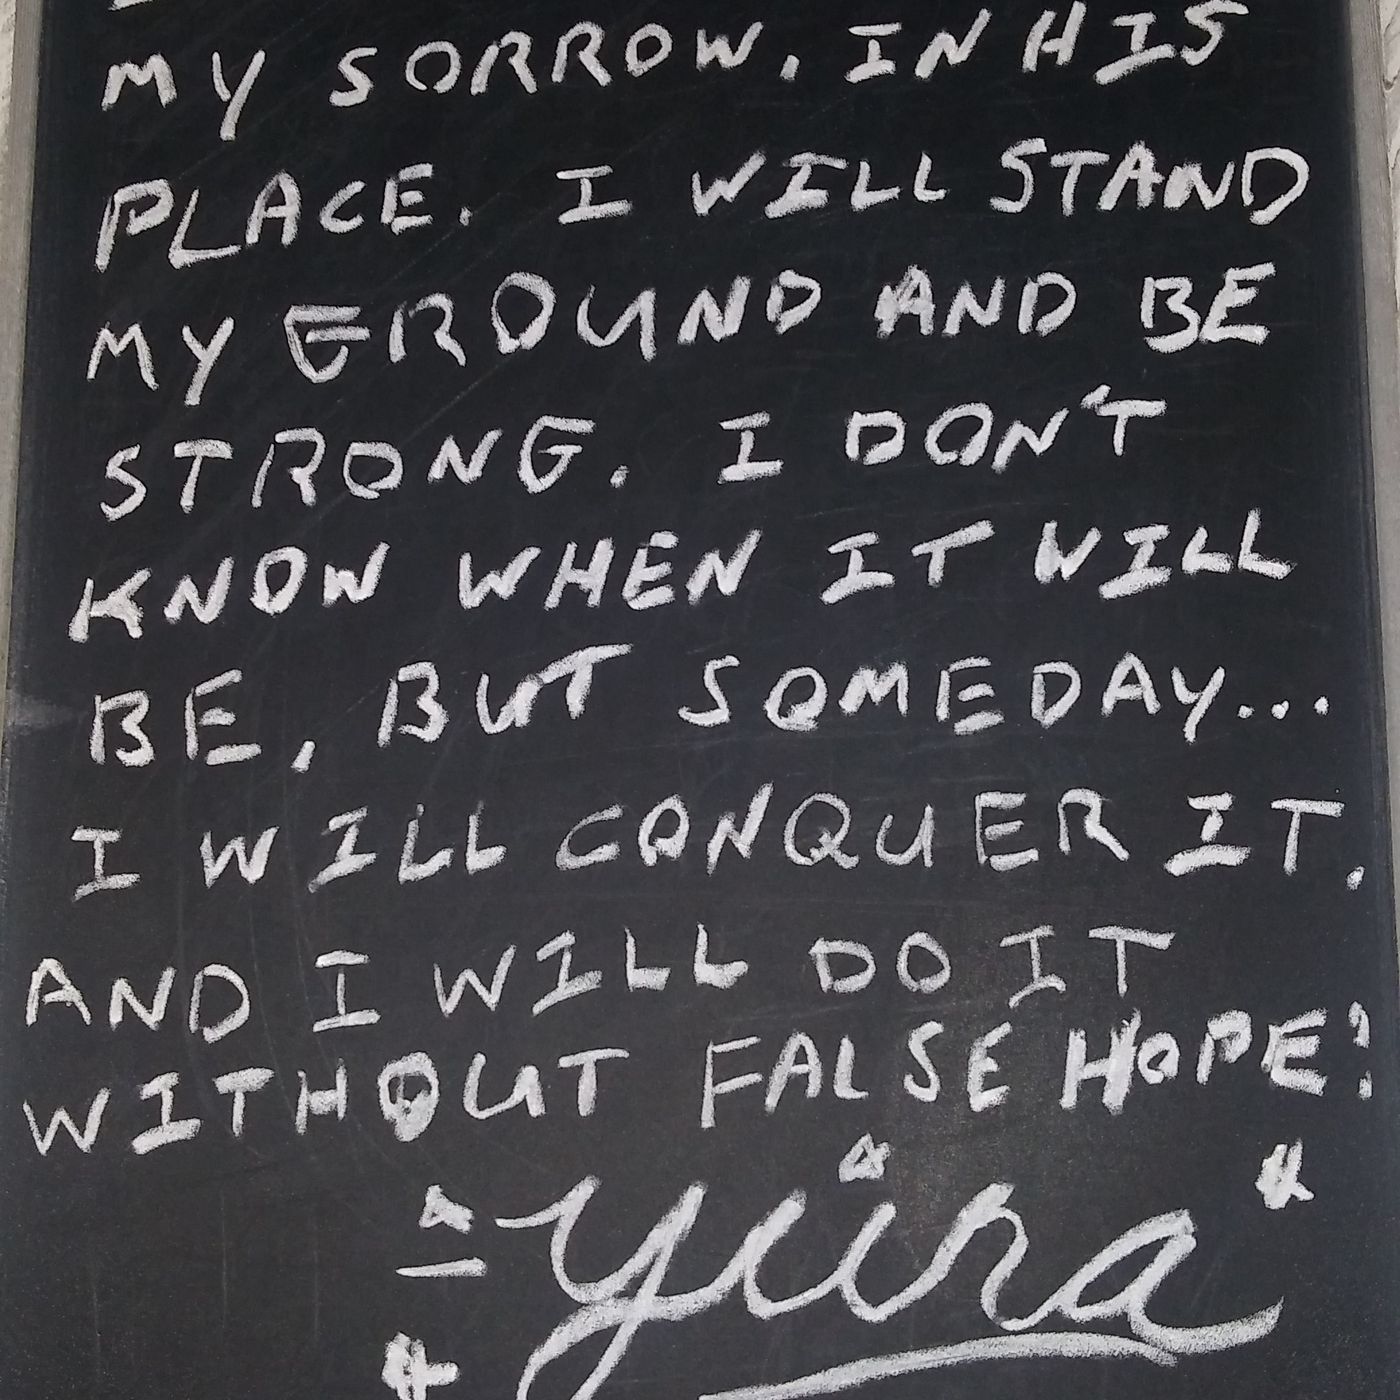 MY SORROW, IN HIS
PLACE. I WILL STAND
MY GROUND AND BE
STRONG. I DON'T
KNOW WHEN IT WILL
BE, BUT SOMEDAY...
I WILL CONQUER IT.
AND I WILL DO IT
WITHOUT FALSE HOPE!
- Yura